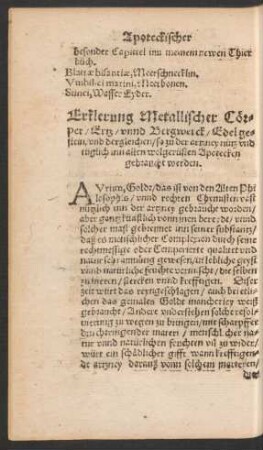 Apoteckischer
besonder Capittel inn meinem newen Thier
bůch.
Blattæ bisantiæ, Meerschnecklin.
Vmbilici marini, Meerbonen.
Hünei, Wasser Eyder.
Erklerung Metallischer Cör-
per / Ertz / vnnd Bergwerck / Edel ge-
stein / vnd dergleichen / so zu der artzney nütz vnd
tuglich inn allen wolgerüsten Apotecken
gebraucht werden.
AVrum, Golde / das ist von den Alten Phi
losophis / vnnd rechten Chymisten vast
nützlich inn der artzney gebraucht worden /
aber gantz künstlich vonn jnen bere / de / vnnd
solcher maß gebrennet inn seiner substantz /
daß es menschlicher Complexion durch seine
rechtmessige oder Temperierte qualitet vnnd
natur sehr anmütig gewesen / die lebliche geyst
vnd natürliche feuchte vermischt / die selben
zu meren / stercken vnnd krefftigen. Diser
zeit würt das reyngeschlagen / auch bei etli-
chen das gemalen Golde mancherley weiß
gebraucht / Andere vnderstehen solchs resol-
uierung zu wegen zu bringen / mit scharpffer
durchtringender materi / menschlicher na-
tur vnnd natürlichen feuchten vil zu wider /
würt ein schädlicher gifft wann krefftigen-
de artzney darauß vonn solchem materien /